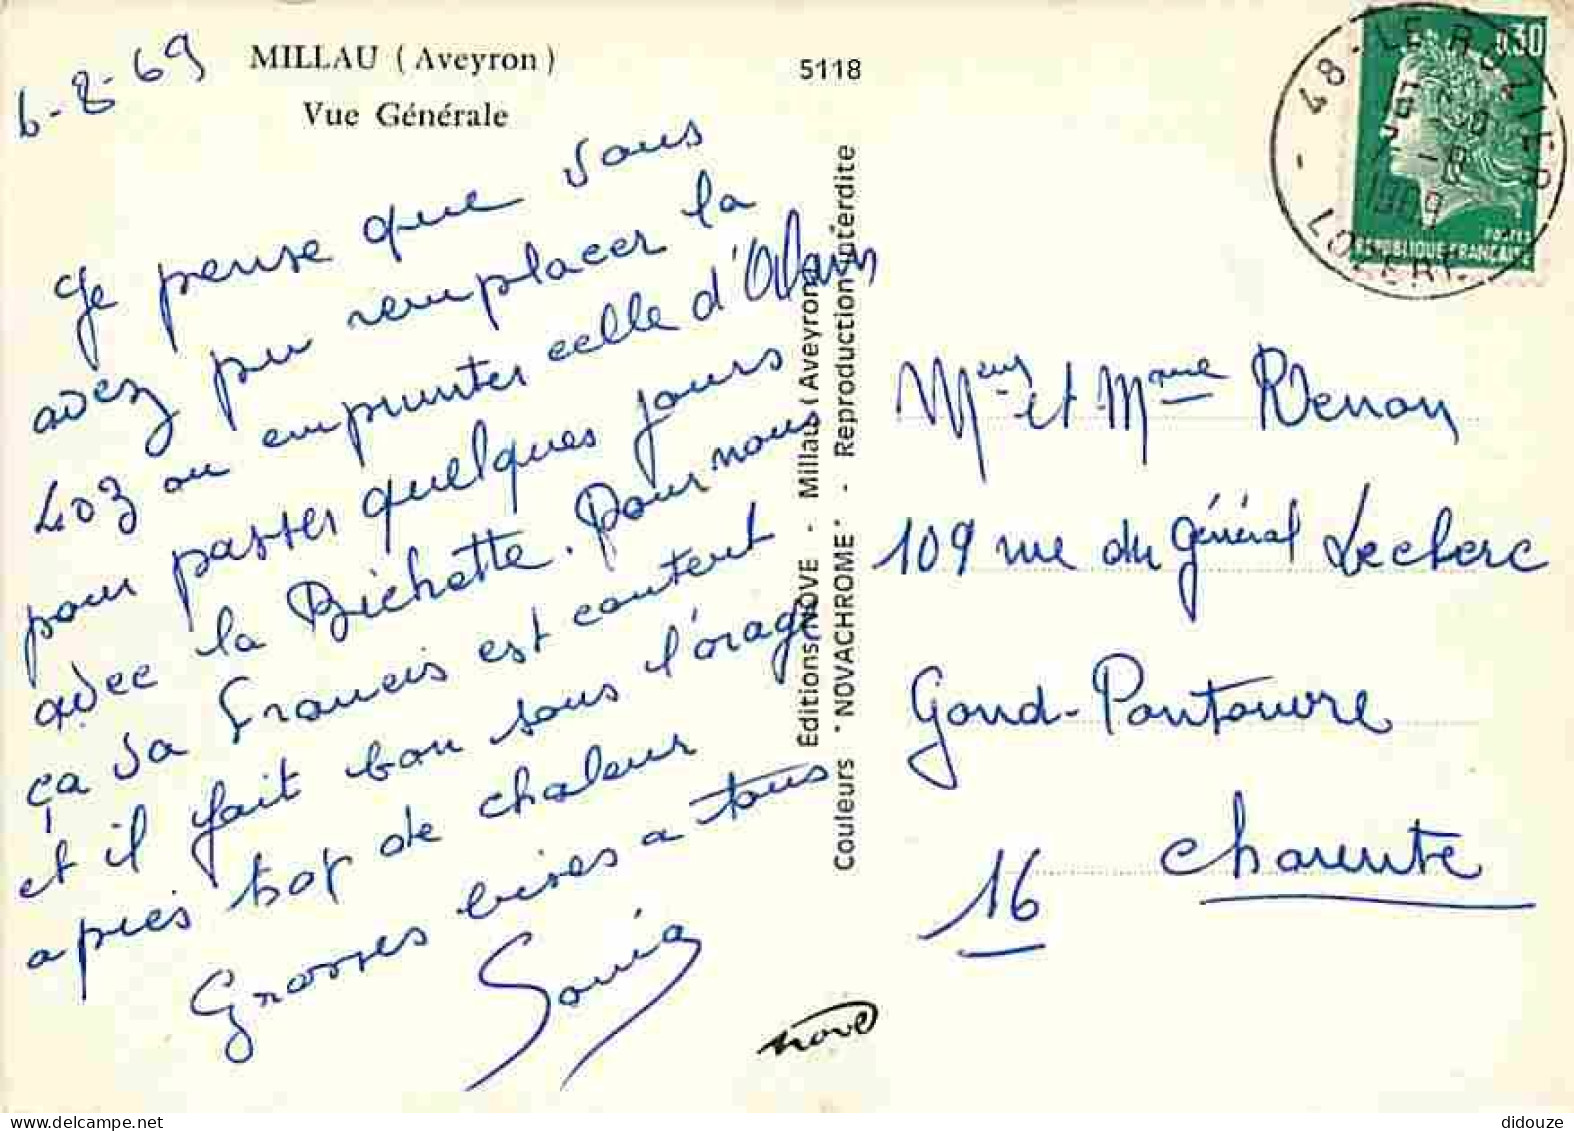 6-8-69
MILLAU (Aveyron)
Vue Générale
5118
Je pense que vous
avez pu remplacer la
403 ou emprunter celle d'Alain
pour passer quelques jours
avec la Bichette. Pour nous
ça va Francis est content
et il fait bon sous l'orage
après trop de chaleur
Grosses bises a tous
Sonia
Éditions NOVE - Millau (Aveyron)
Couleurs "NOVACHROME" - Reproduction interdite
nove
0,30
POSTES
REPUBLIQUE FRANCAISE
48 - LE ROZIER
LOZERE
-8
1969
Meur et Mme Renon
109 rue du Général Leclerc
Gond-Pontouvre
16 Charente
didouze